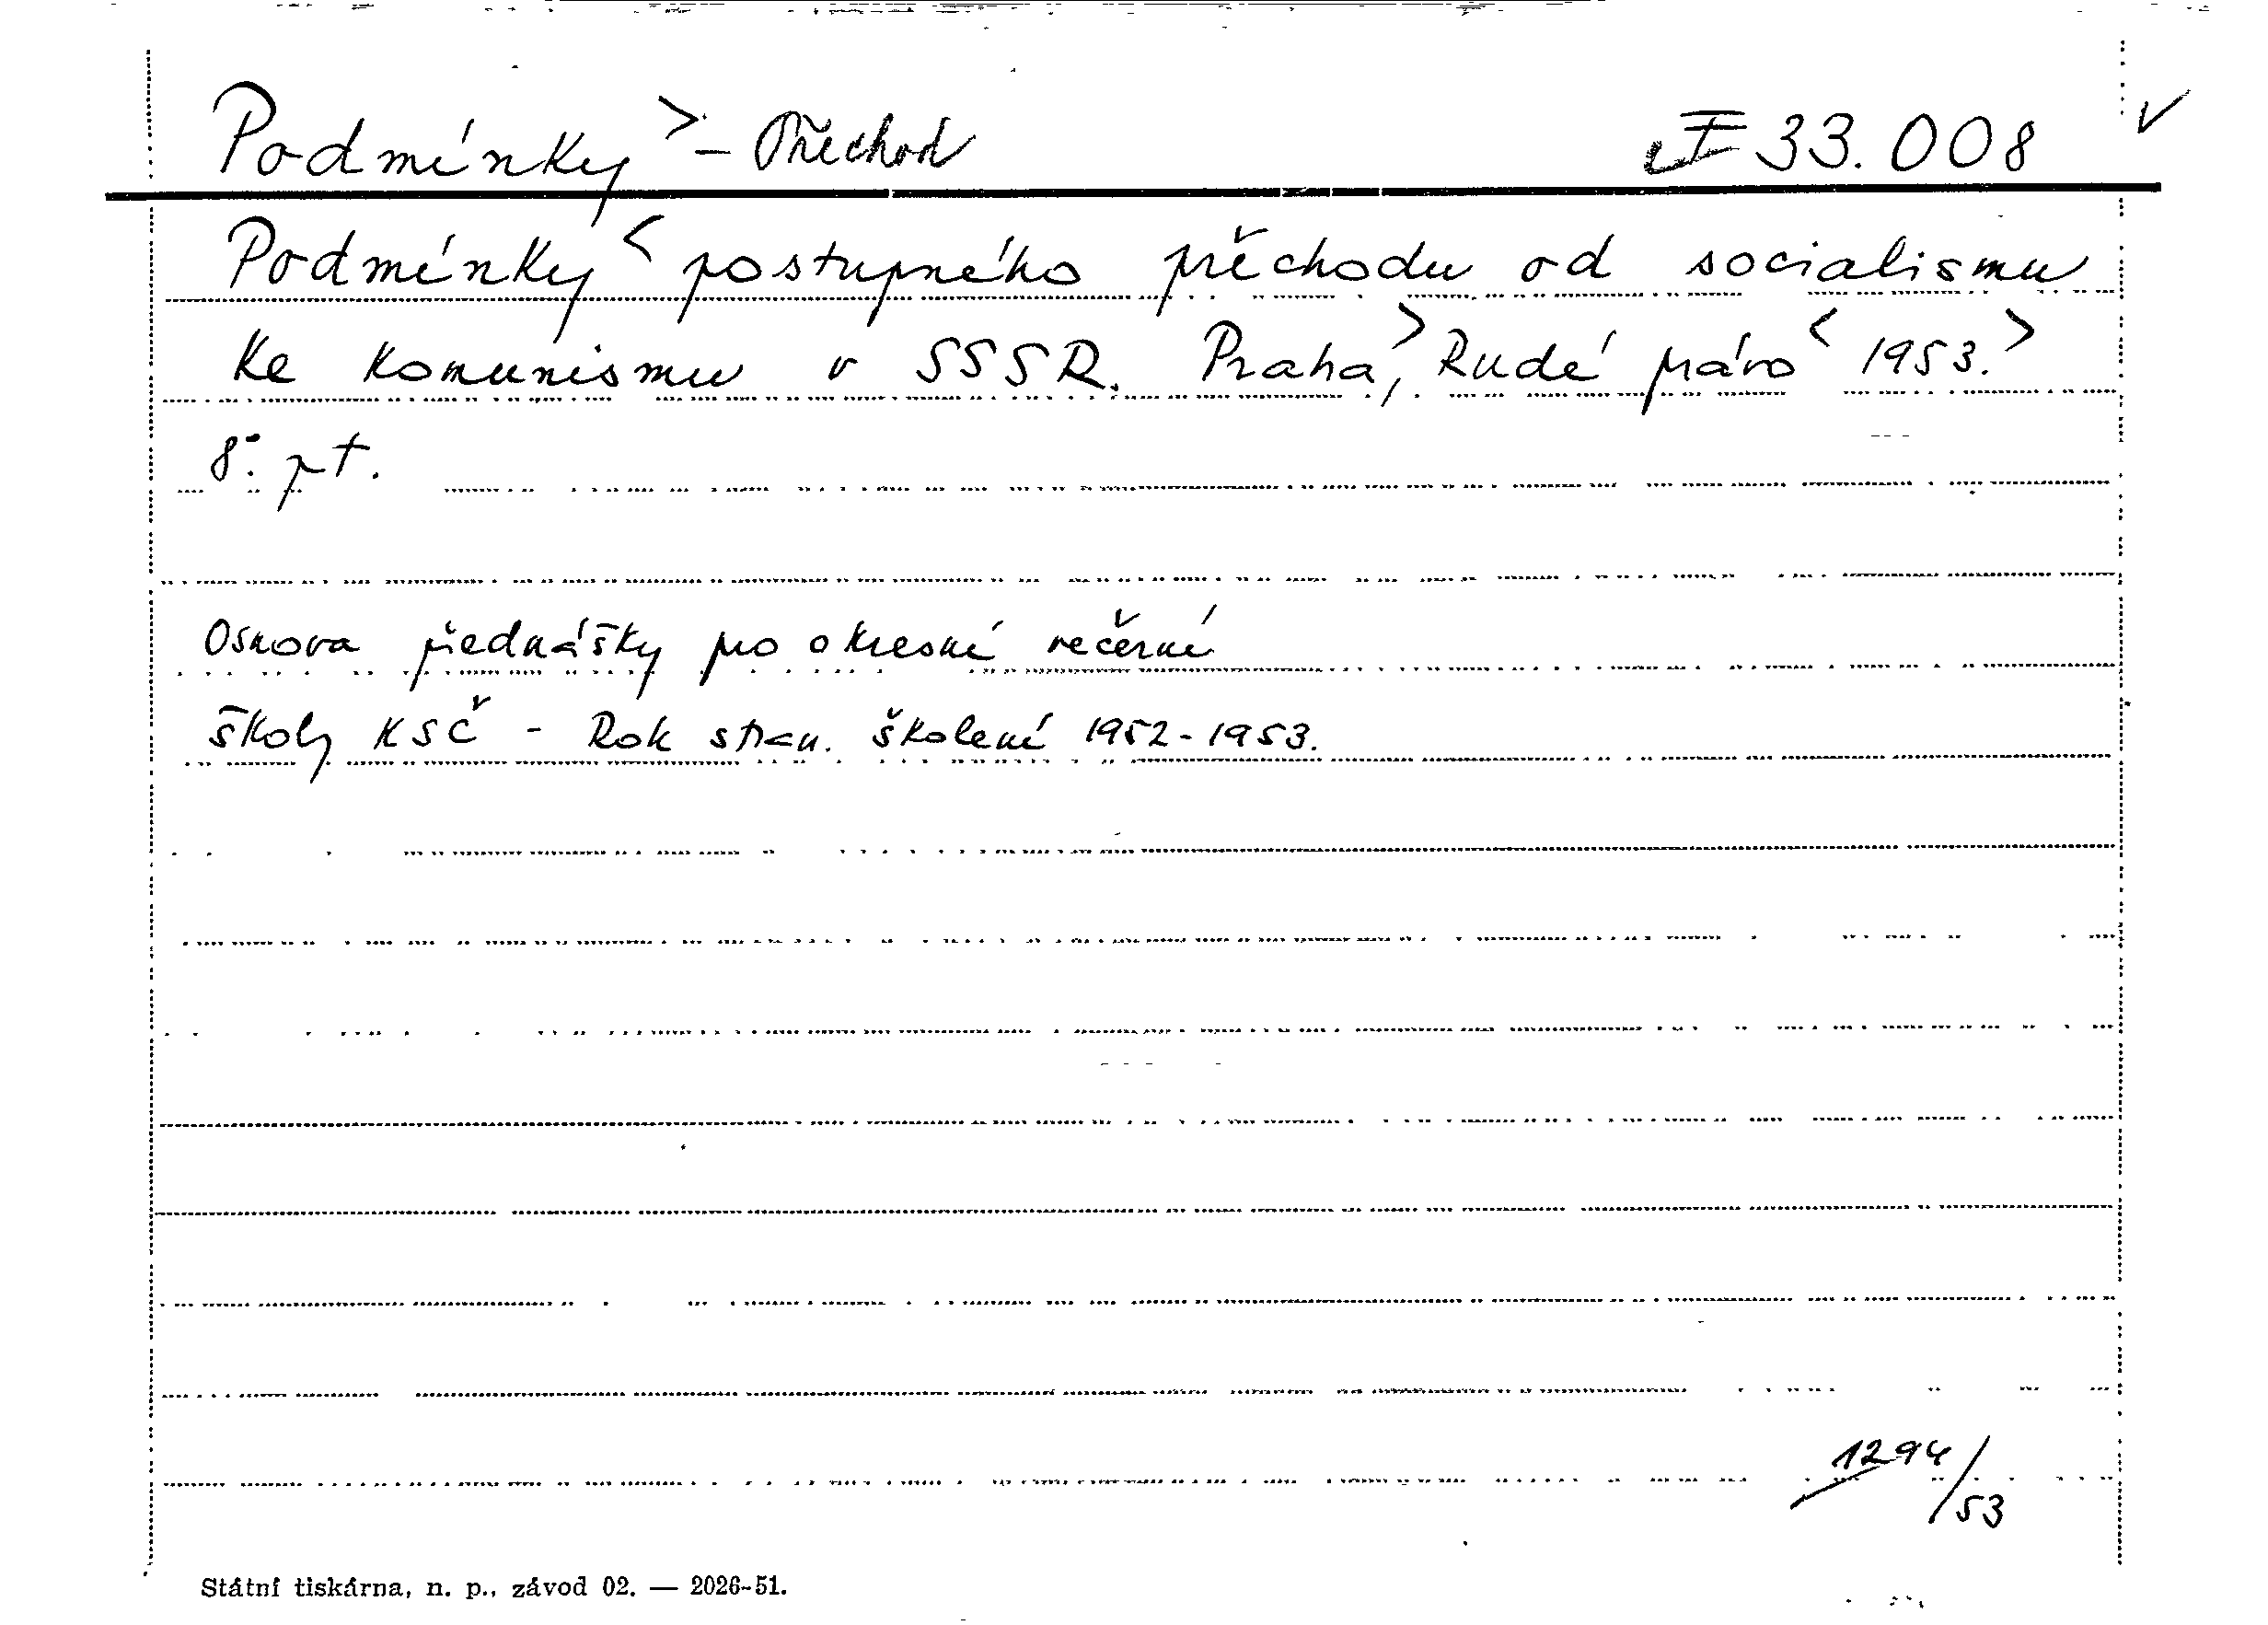 Podmínky > - Přechod I 33.008 ✓
Podmínky < postupného přechodu od socialismu
ke komunismu v SSSR. Praha, > Rudé právo < 1953. >
8°. pt.
Osnova přednášky pro okresní večerní
školy KSČ - Rok stran. školení 1952-1953.
1294/53
Státní tiskárna, n. p., závod 02. — 2026-51.